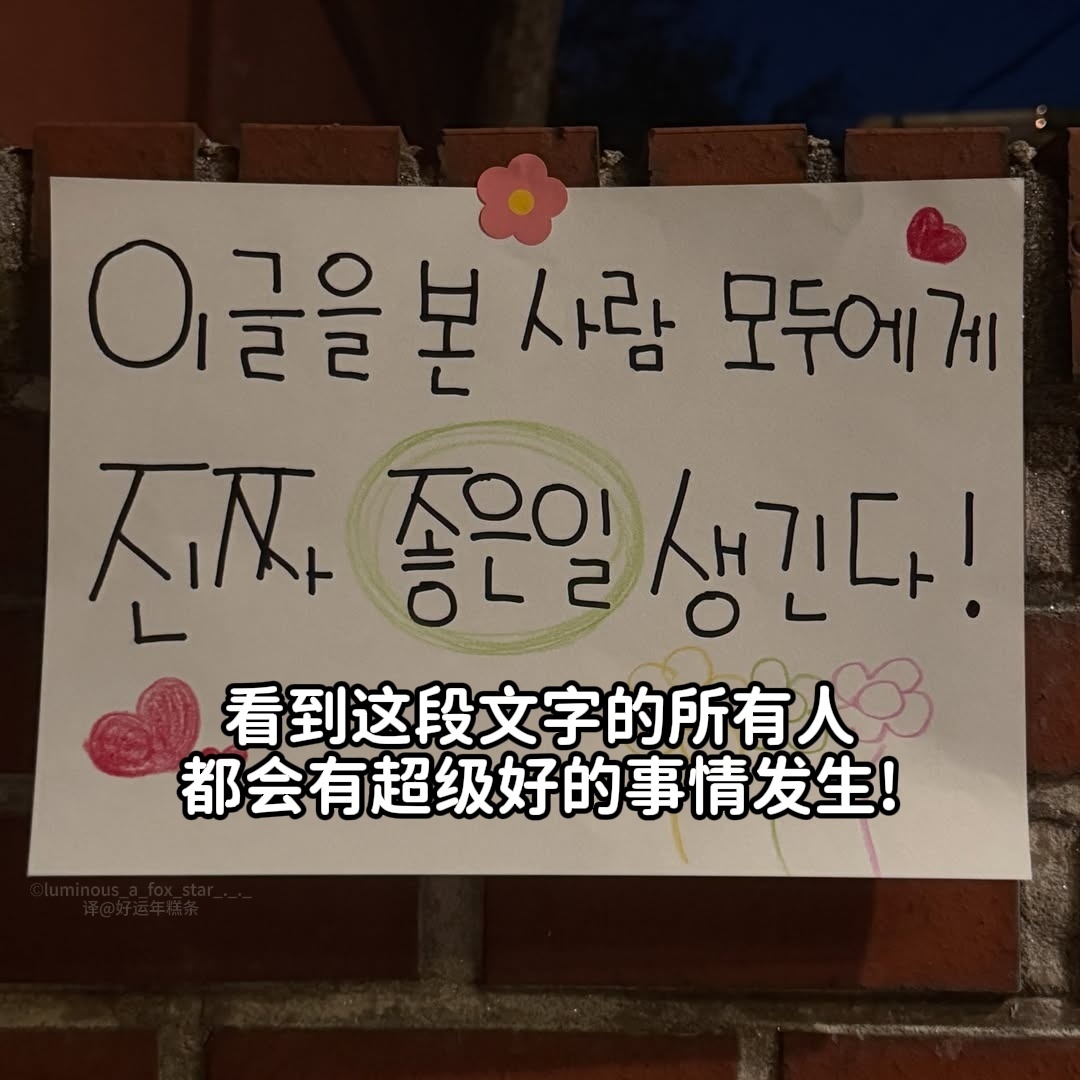 이 글을 본 사람 모두에게
진짜 좋은일 생긴다!
看到这段文字的所有人
都会有超级好的事情发生!
©luminous_a_fox_star_._._
译@好运年糕条